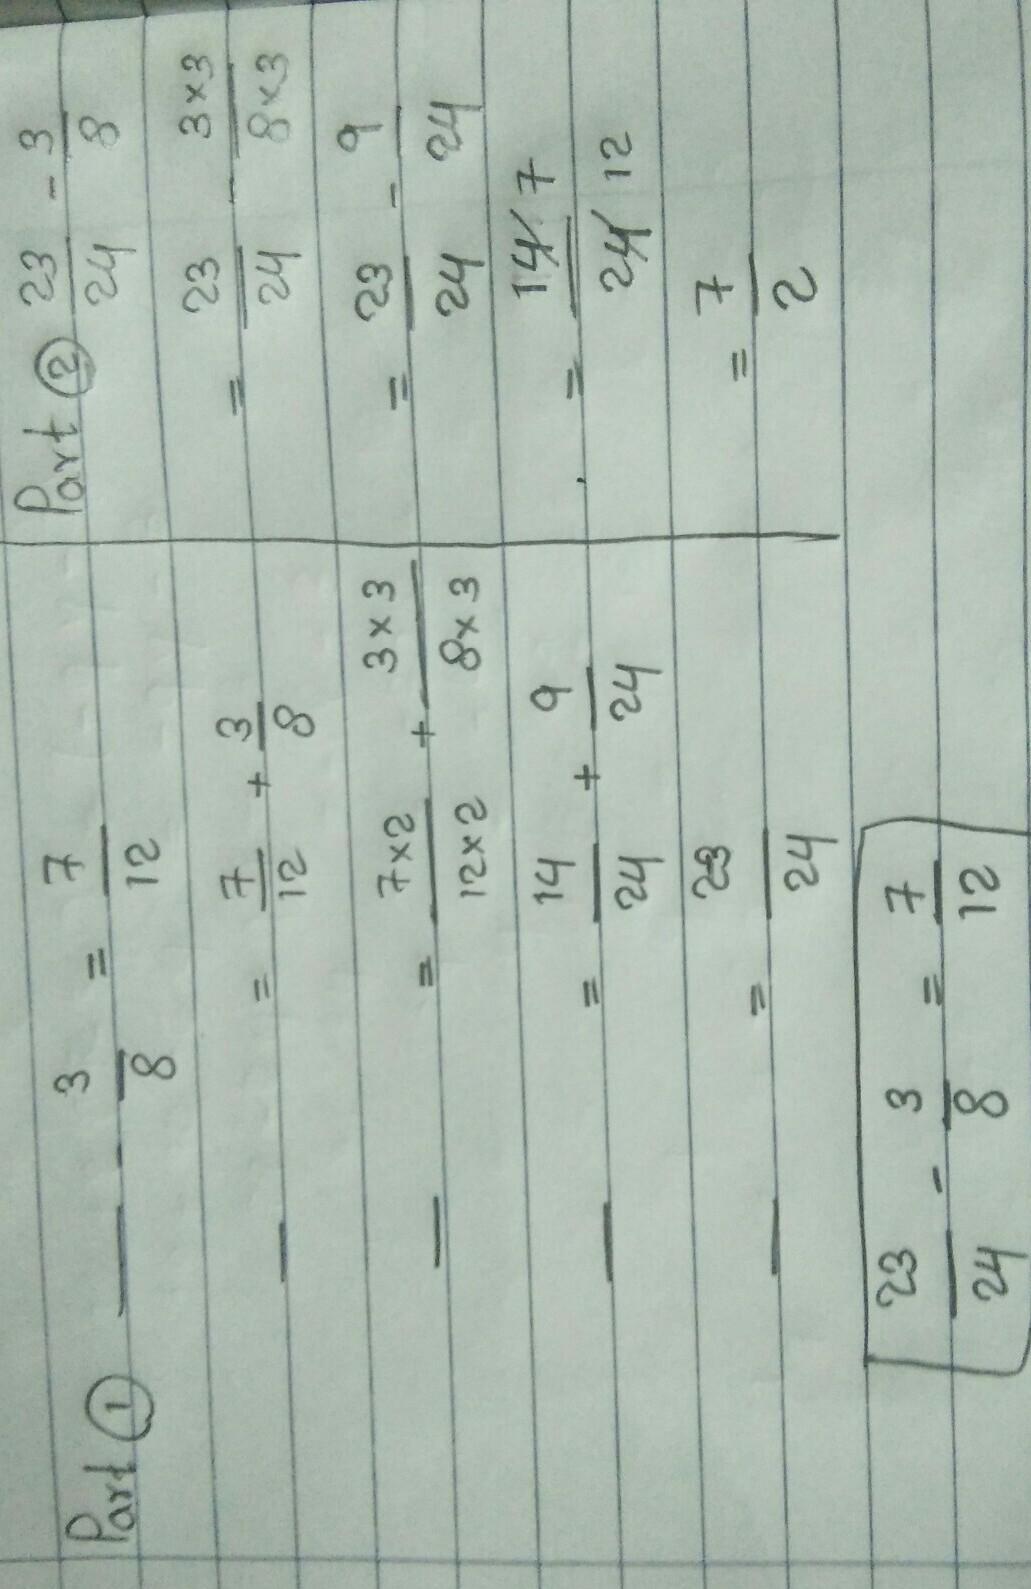 Part ① __ - 3/8 = 7/12
__ = 7/12 + 3/8
__ = 7×2/12×2 + 3×3/8×3
__ = 14/24 + 9/24
__ = 23/24
23/24 - 3/8 = 7/12
Part ② 23/24 - 3/8
= 23/24 - 3×3/8×3
= 23/24 - 9/24
= 14/24 7/12
= 7/2